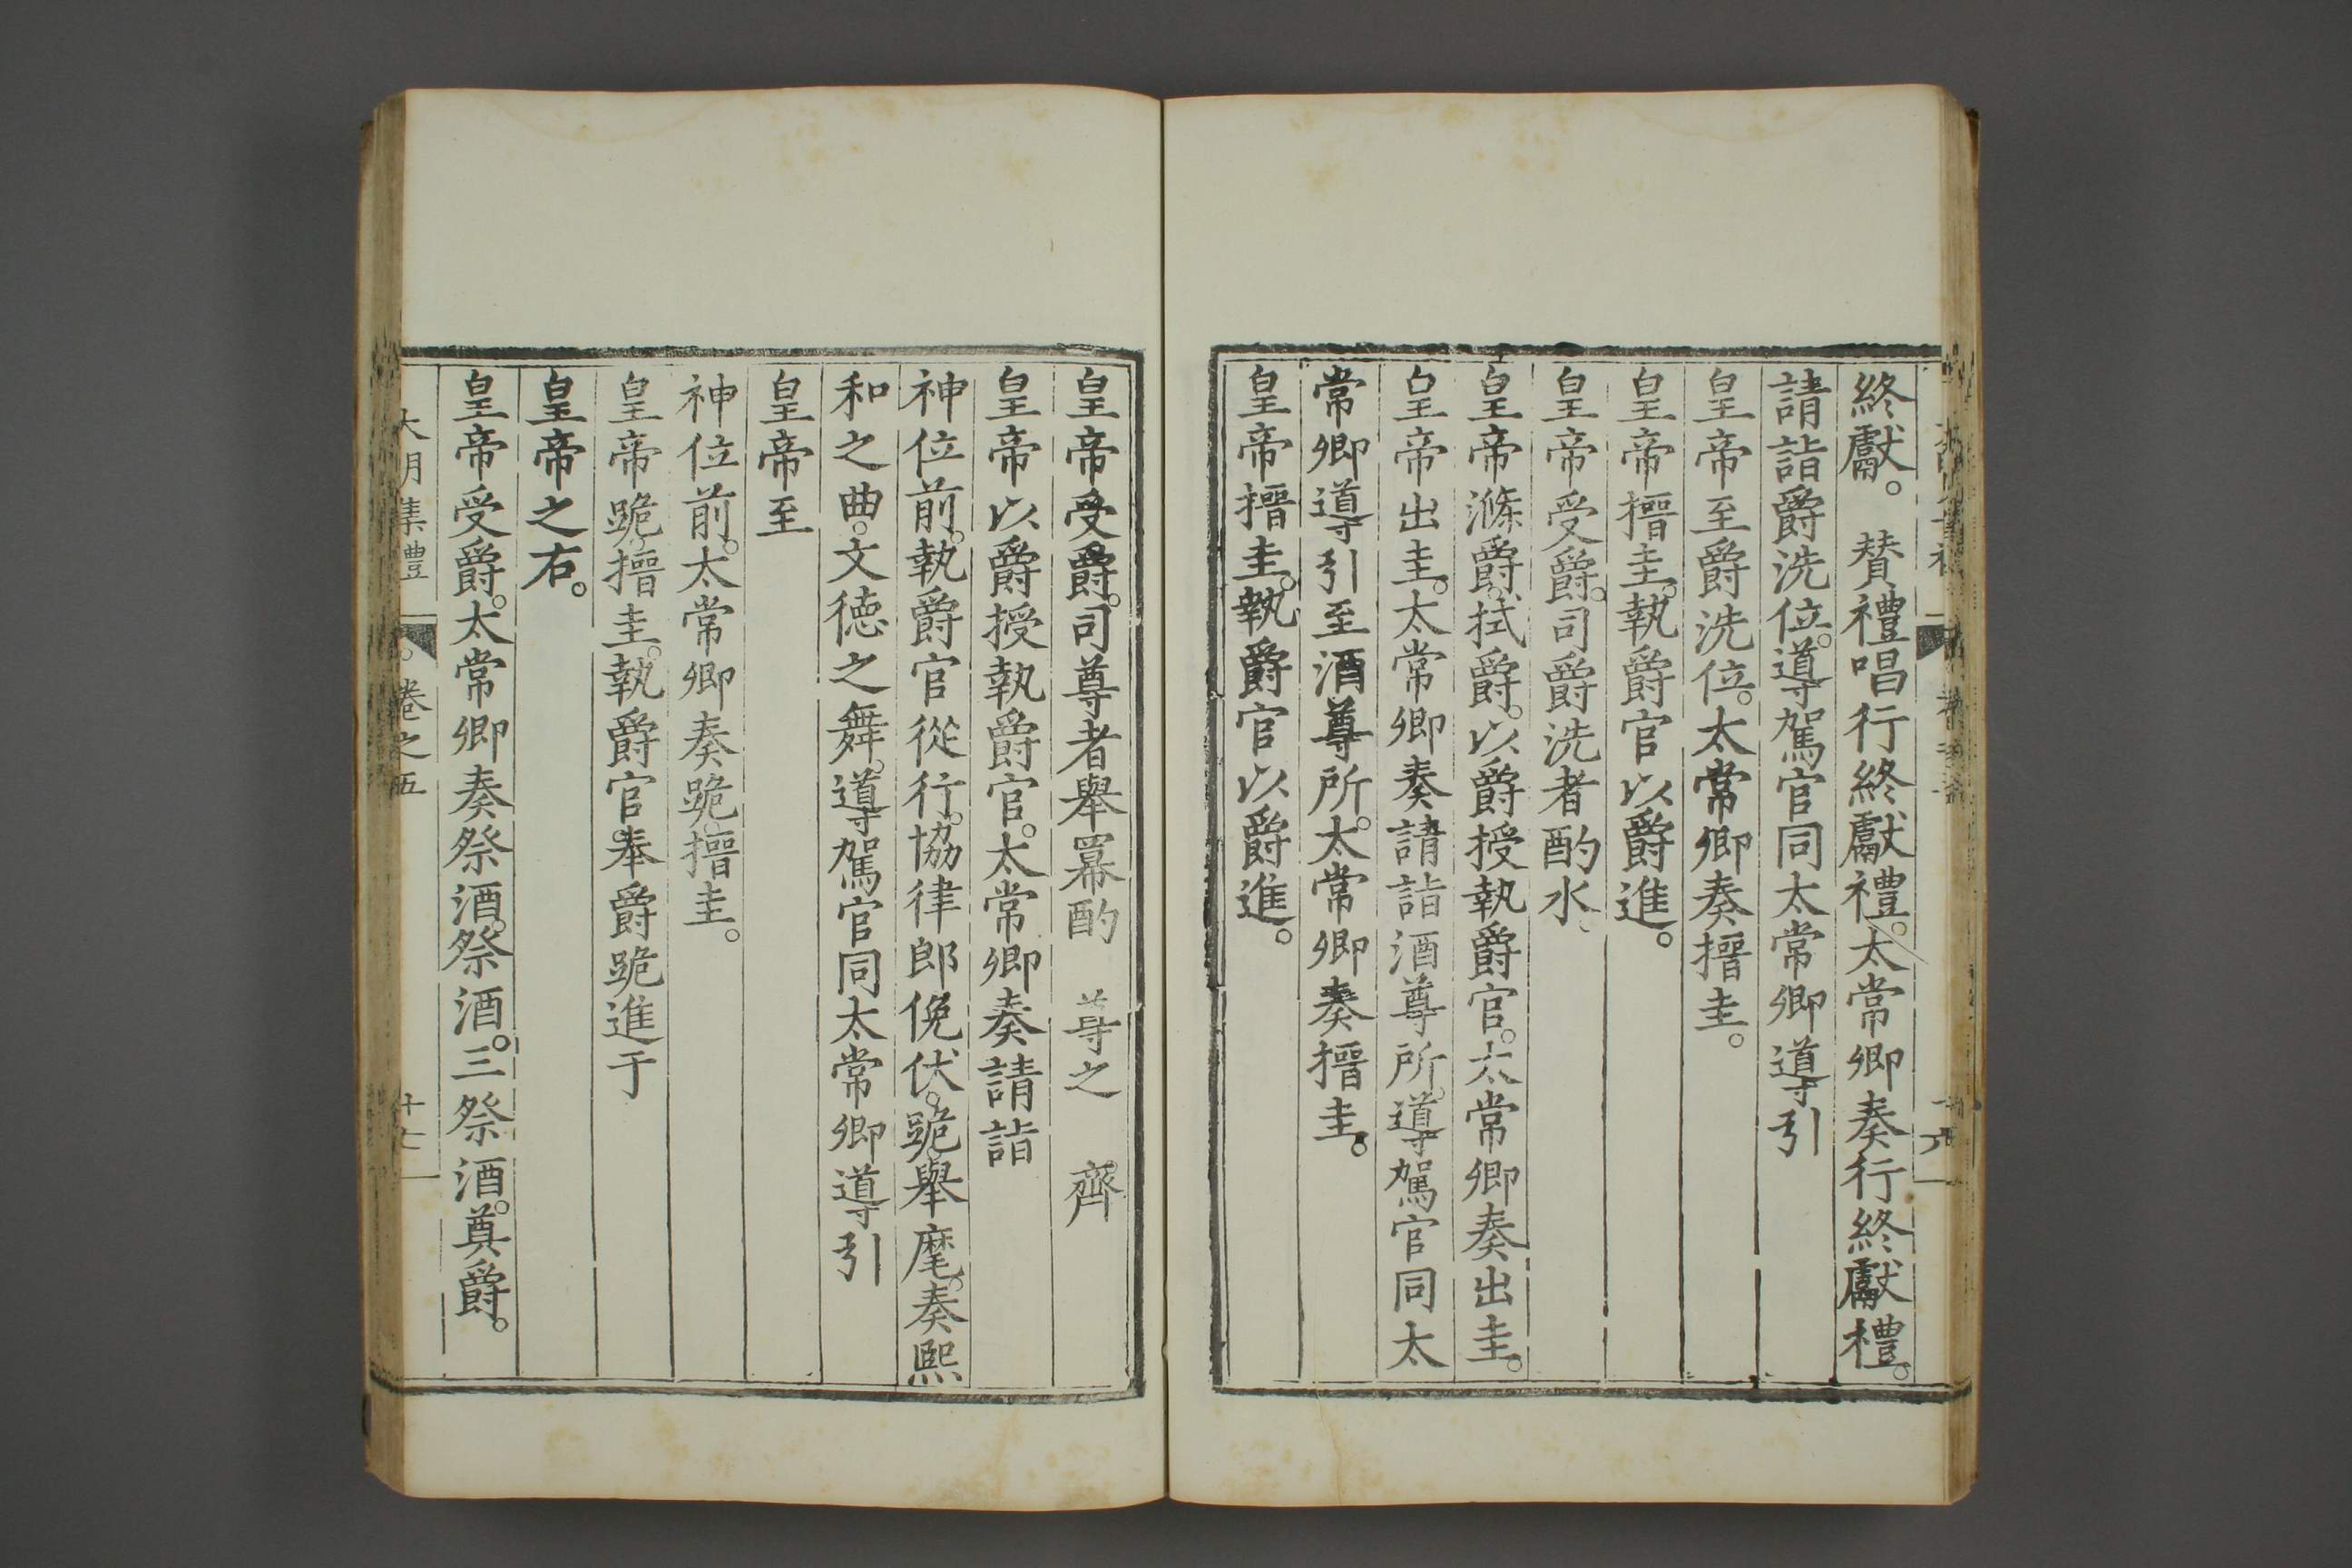 終獻。　贊禮唱行終獻禮。太常卿奏行終獻禮。
請詣爵洗位。導駕官同太常卿導引
皇帝至爵洗位。太常卿奏搢圭。
皇帝搢圭。執爵官以爵進。
皇帝受爵。司爵洗者酌水。
皇帝滌爵。拭爵。以爵授執爵官。太常卿奏出圭。
皇帝出圭。太常卿奏請詣酒尊所。導駕官同太
常卿導引至酒尊所。太常卿奏搢圭。
皇帝搢圭。執爵官以爵進。
皇帝受爵。司尊者舉羃酌　尊之　齊
皇帝以爵授執爵官。太常卿奏請詣
神位前。執爵官從行。協律郎俛伏。跪。舉麾。奏熙
和之曲。文德之舞。導駕官同太常卿導引
皇帝至
神位前。太常卿奏跪。搢圭。
皇帝跪。搢圭。執爵官。奉爵跪進于
皇帝之右。
皇帝受爵。太常卿奏祭酒。祭酒。三祭酒。奠爵。
大明集禮　卷之五　十七